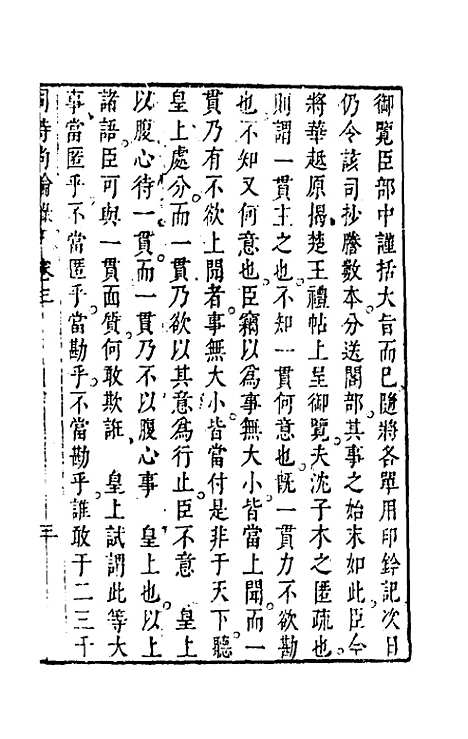 御覽臣部中謹括大旨而已隨將各單用印鈐記次日
仍令該司抄謄數本分送閣部其事之始末如此臣今
將華趆原揭楚王禮帖上呈御覽夫沈子木之匿疏也
則謂一貫主之也不知一貫何意也旣一貫力不欲勘
也不知又何意也臣竊以為事無大小皆當上聞而一
貫乃有不欲上聞者事無大小皆當付是非于天下聽
皇上處分而一貫乃欲以其意為行止臣不意　皇上
以腹心待一貫而一貫乃不以腹心事　皇上也以上
諸語臣可與一貫面質何敢欺誑　皇上試謂此等大
事當匿乎不當匿乎當勘乎不當勘乎誰敢于二三千
同時尚論錄　卷三